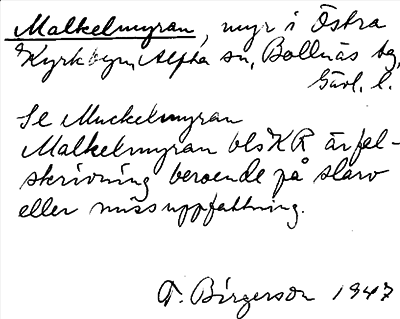 Malkelmyran, myr i Östra
Kyrkbyn, Alfta sn, Bollnäs tg,
Gävl. l.
Se Muckelmyran
Malkelmyran bls KR är fel-
skrivning beroende på slarv
eller missuppfattning.
T. Birgerson 1947